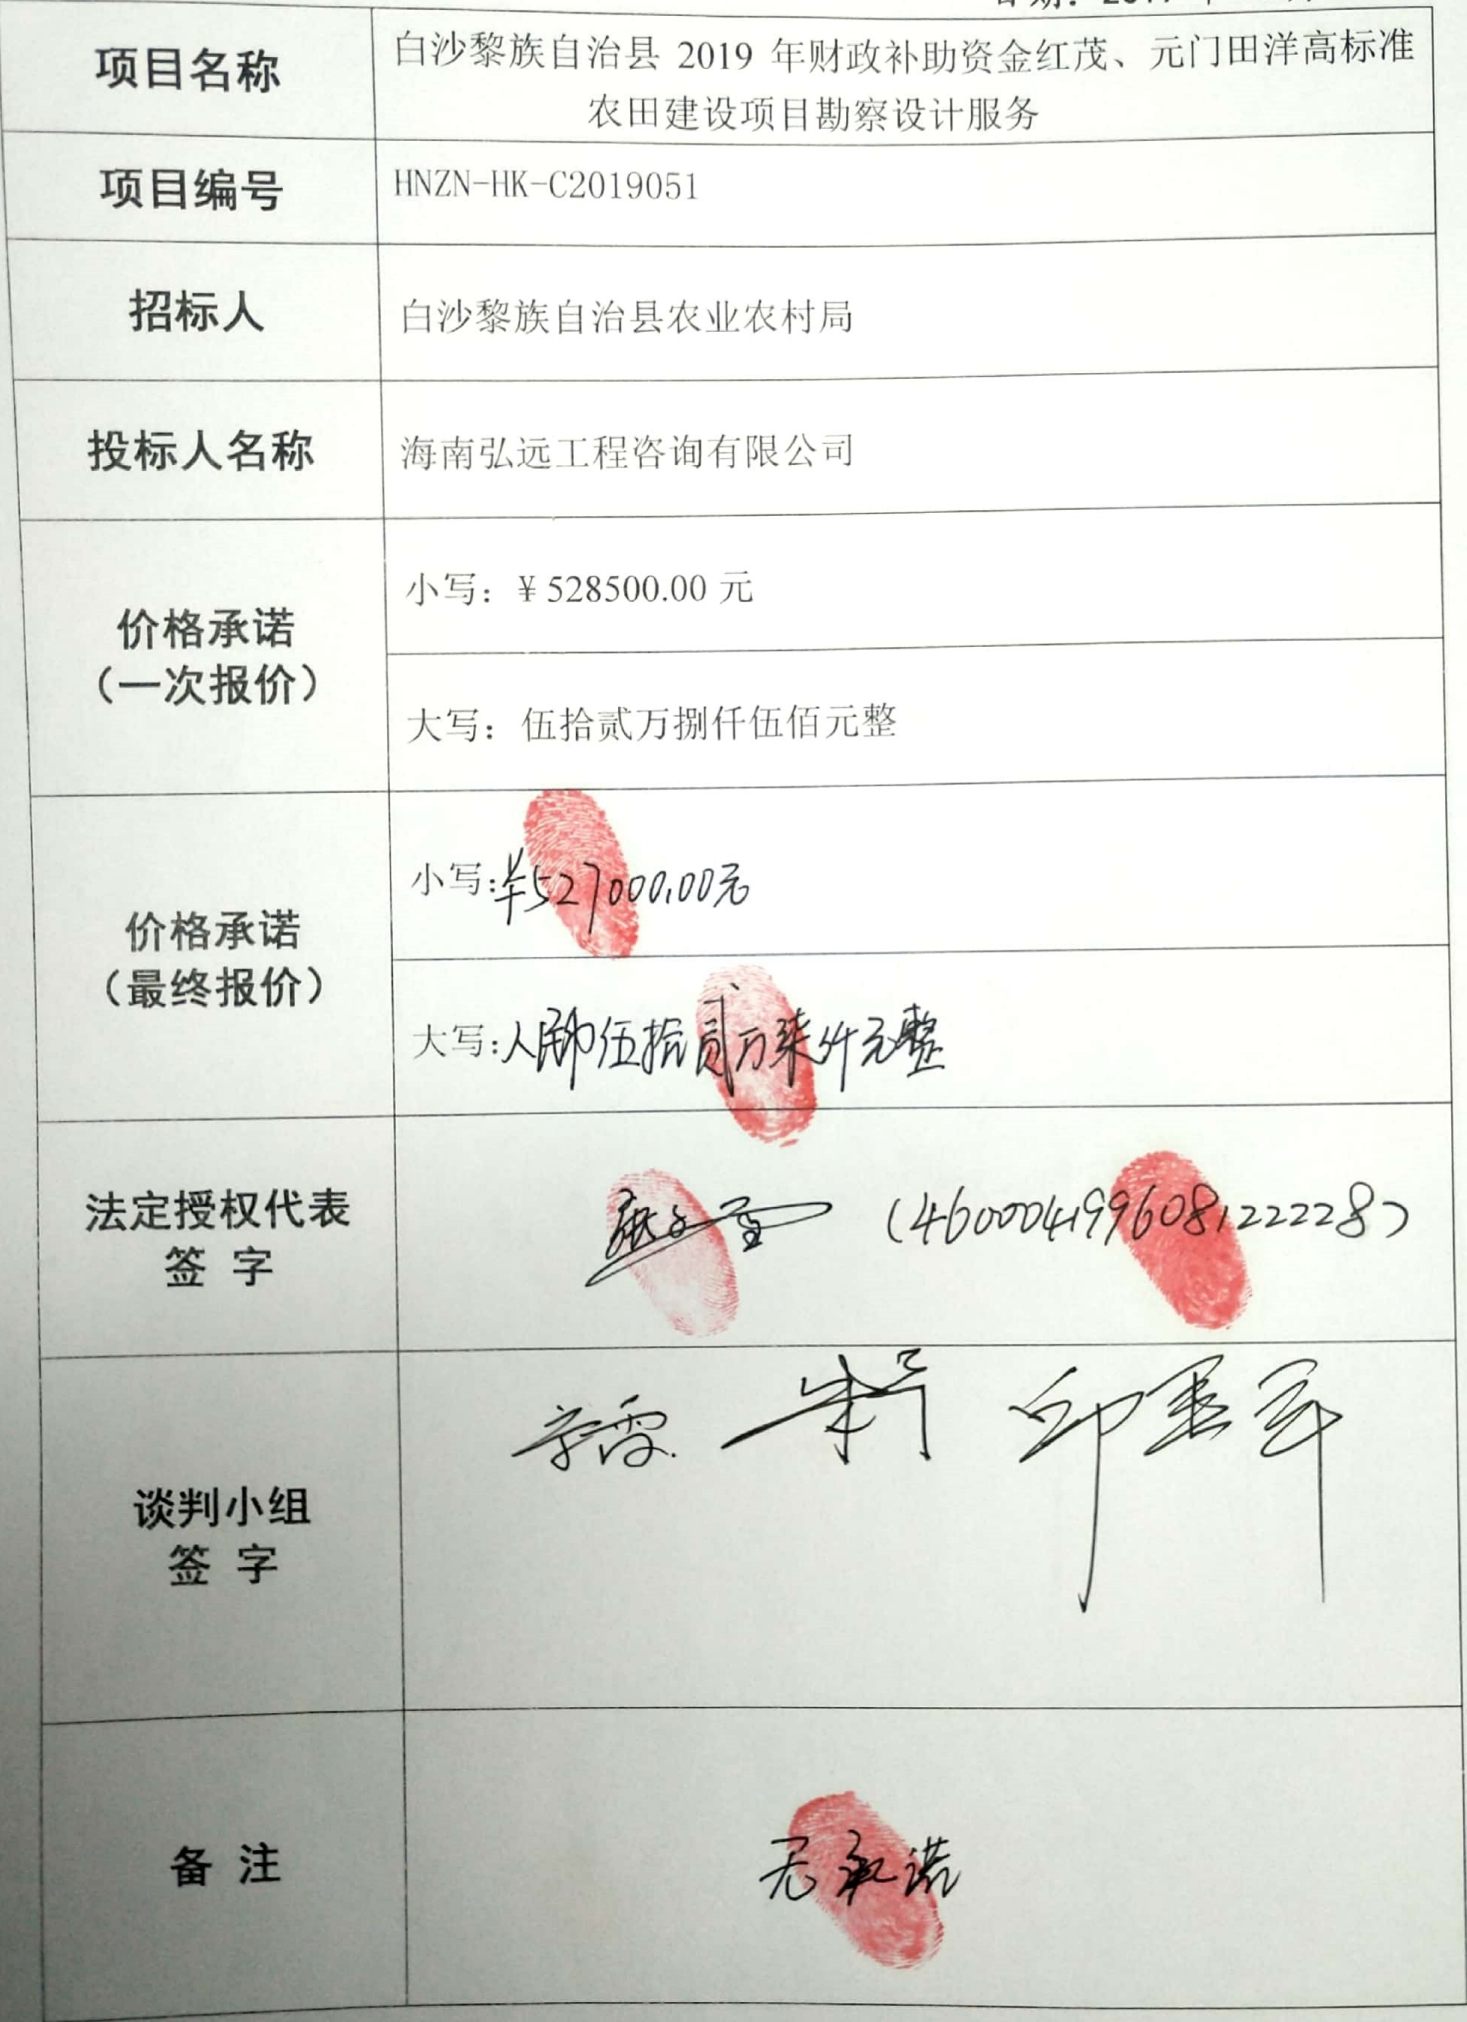 项目名称
白沙黎族自治县 2019 年财政补助资金红茂、元门田洋高标准
农田建设项目勘察设计服务
项目编号
HNZN-HK-C2019051
招标人
白沙黎族自治县农业农村局
投标人名称
海南弘远工程咨询有限公司
价格承诺
（一次报价）
小写：¥ 528500.00 元
大写：伍拾贰万捌仟伍佰元整
价格承诺
（最终报价）
小写:¥527000.00元
大写:人民币伍拾贰万柒仟元整
法定授权代表
签 字
(460004199608122228)
谈判小组
签 字
备 注
无承诺